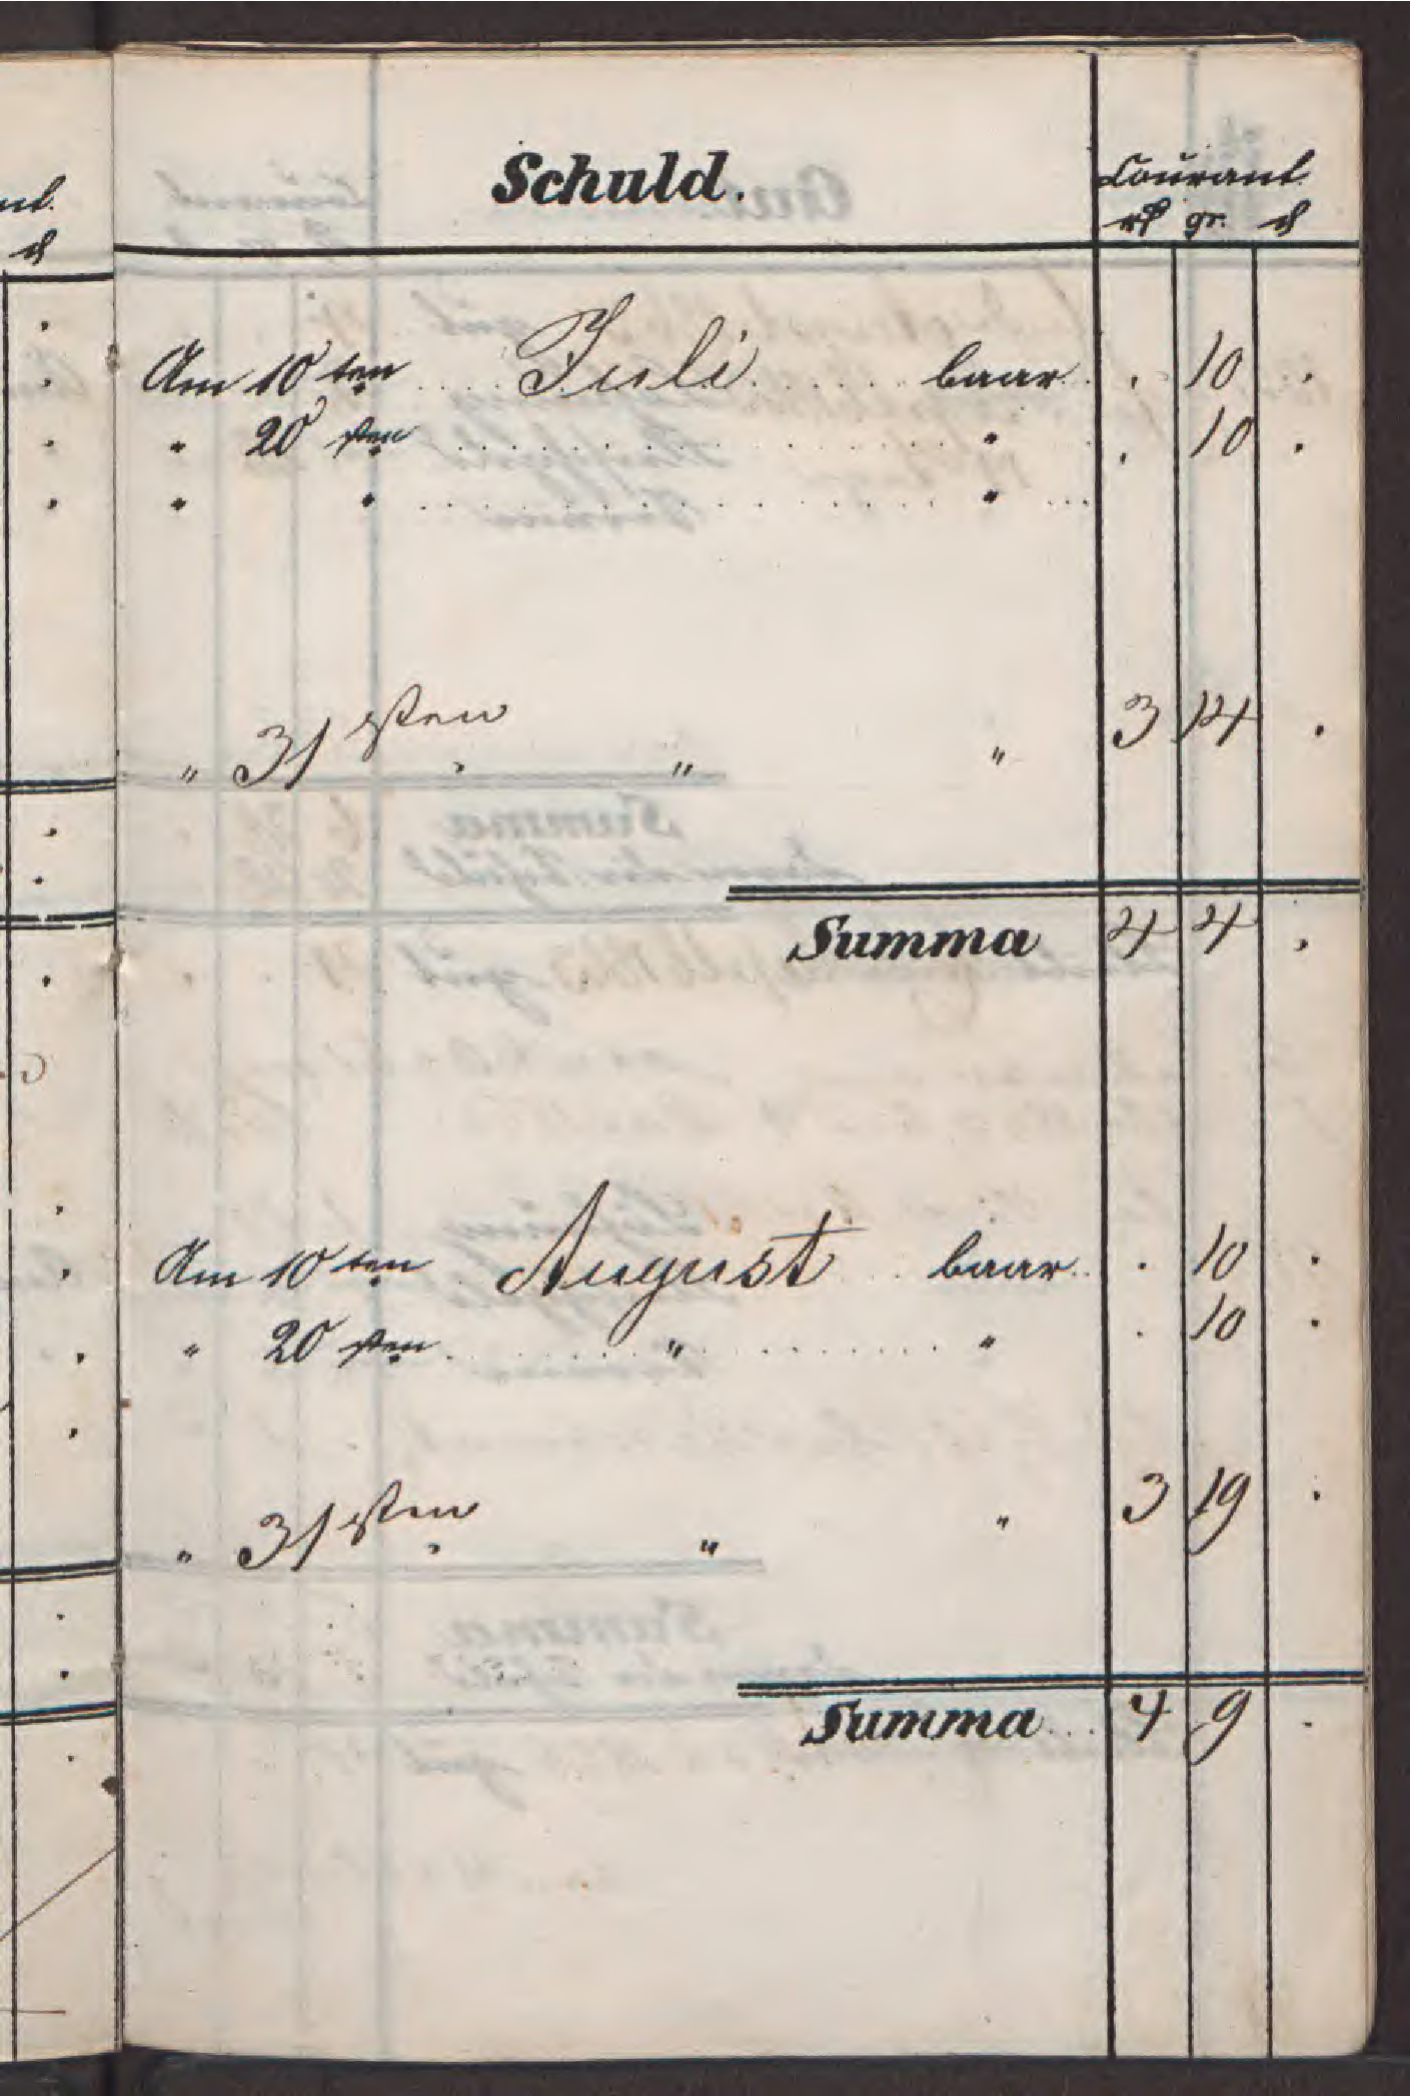 Schuld.
Courant.
rℓ gr. ₰
Am 10 ten .... Juli ..... baar. . 10 .
" 20 sten ........ " . 10 .
" " ........ " ...
" 31 sten " " 3 14 .
Summa 4 4 .
Am 10 ten .. August .. baar.. . 10 .
" 20 sten ....... " ....... " . 10 .
" 31 sten " " 3 19 .
Summa ... 4 9 .